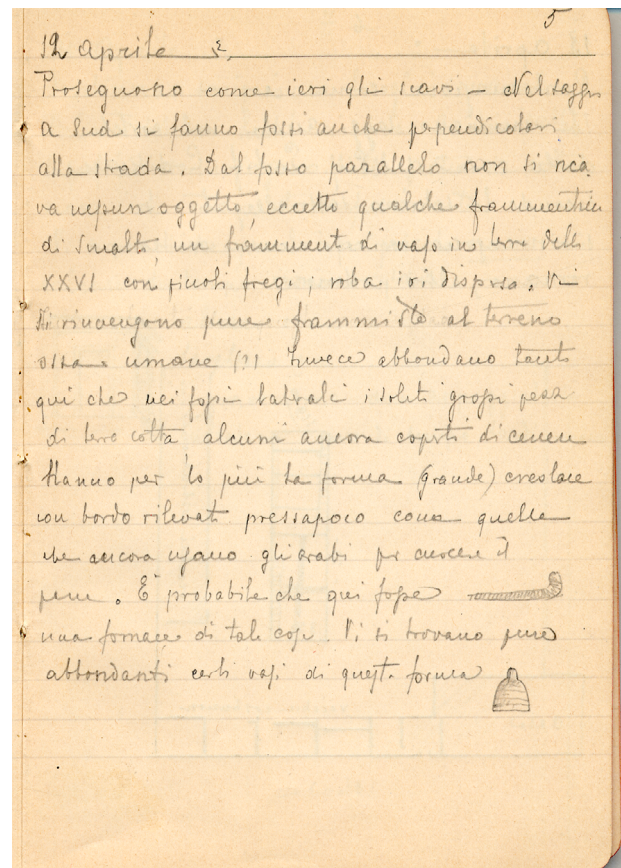 5
12 Aprile
Proseguono come ieri gli scavi – Nel saggio
a Sud si fanno fossi anche perpendicolari
alla strada. Dal fosso parallelo non si rica
va nessun oggetto, eccetto qualche frammentino
di smalto, un framment di vaso in terra della
XXVI con piccoli fregi; roba ivi dispersa. Vi
si rinvengono pure frammiste al terreno
ossa umane (?) Invece abbondano tanto
qui che nei fossi laterali i soliti grossi pezzi
di terra cotta alcuni ancora coperti di cenere
Hanno per lo più la forma (grande) circolare
con bordo rilevato pressapoco come quelle
che ancora usano gli arabi per cuocere il
pane. E' probabile che qui fosse
una fornace di tali cose. Vi si trovano pure
abbondanti certi vasi di questa forma